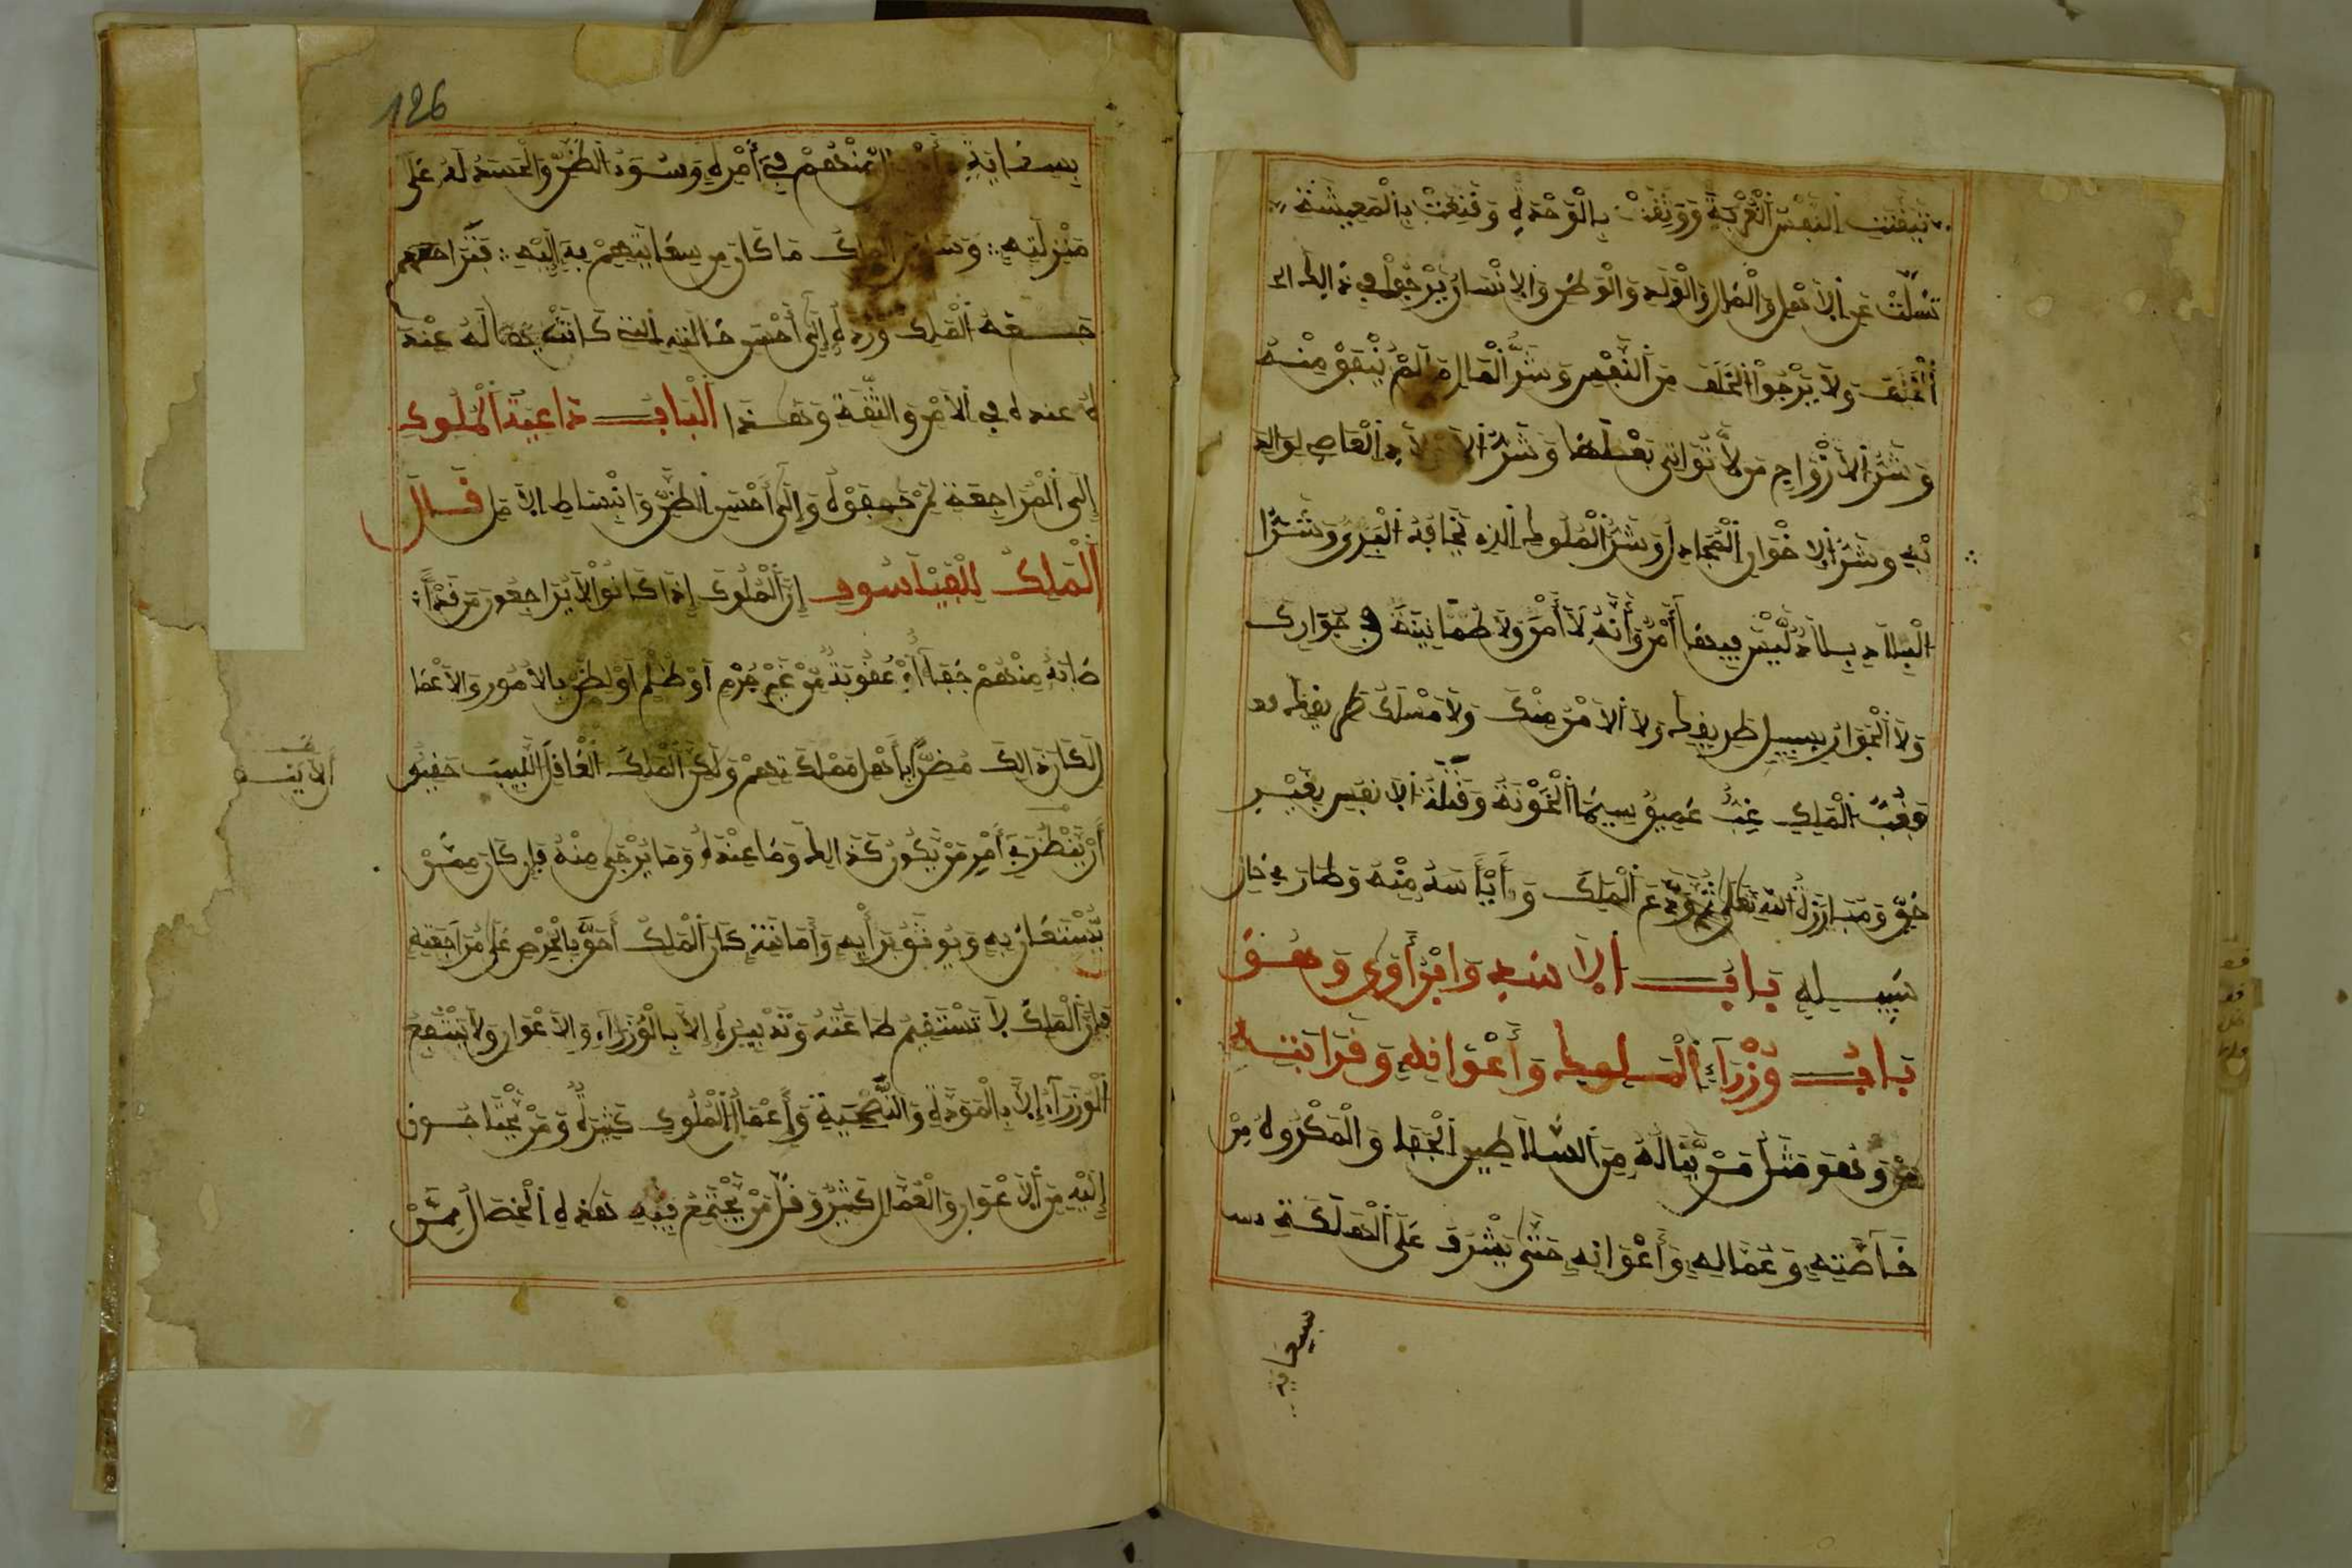 تيقنت النفس الغربة ووثقت بالوحدة وقنعت بالمعيشة
تسلت عن الاهل والمال والولد والوطن والانسان يرجوا في ذالك
الخلف ولا يرجوا الخلف من النفس وشر المال ما لم ينفق منه
وشر الازواج من لا تواتى بعلها وشر الاولاد العاص لوالد
يه وشر الاخوان الخاذل وشر الملوك الذي يخافه البري وشر
البلاد بلاد ليس فيها أمن وأنه لا أمن ولا طمانينة في جوارك
ولا الجوار سبيل طريقك ولا الامن منك ولا مسلك
فقب الملك غب عميق سيما الخونة وقتلة الانفس بغير
حق ومبارزة الله تعلى ثم ودع الملك وأيأسه منه وطار في حال
سبيله باب الاسد وابن أوى وهو
باب وزراء الملوك وأعوانه وقرابته
وهو مثل من يناله من السلاطين الجفا والمكروه من
خاصته وعماله وأعوانه حتى يشرف على الهلكة
سعاية
126
بسعاية منهم في أمره وسوء الظن والحسد له على
منزلته وسائر الملك ما كان من سعايتهم به إليه فتراحمهم
الملك ورده إلى أحسن حالته التي كانت له عنده
عنده في الامر والثقة وهذا الباب داعية الملوك
إلى المراجعة لمن جفوه وإلى أحسن الظن وانبساط الامل قال
الملك للفيلسوف إن الملوك إذا كانوا لا يراجعون من قد
صابه منهم جفاء أو عقوبة من غير جرم أو ظلم أو لظن بالامور والاعما
ل كان ذالك مضرا بأهل مملكتهم ولكن الملك العاقل اللبيب حقيق
الا
أن ينظر في أمر من يكون كذالك وما عنده وما يرجى منه فإن كان ممن
يستعان به ويوثق برأيه وأمانته كان الملك أحق بالحرص على مراجعته
فإن الملك لا تستقيم طاعته وتدبيره إلا بالوزراء والاعوان ولا ينتفع
الوزراء إلا بالمودة والنصحية وأعمال الملوك كثيرة ومن يحتاجون
إليه من الاعوان والعمال كثير وقل من يجتمع فيه هذه الخصال ممن